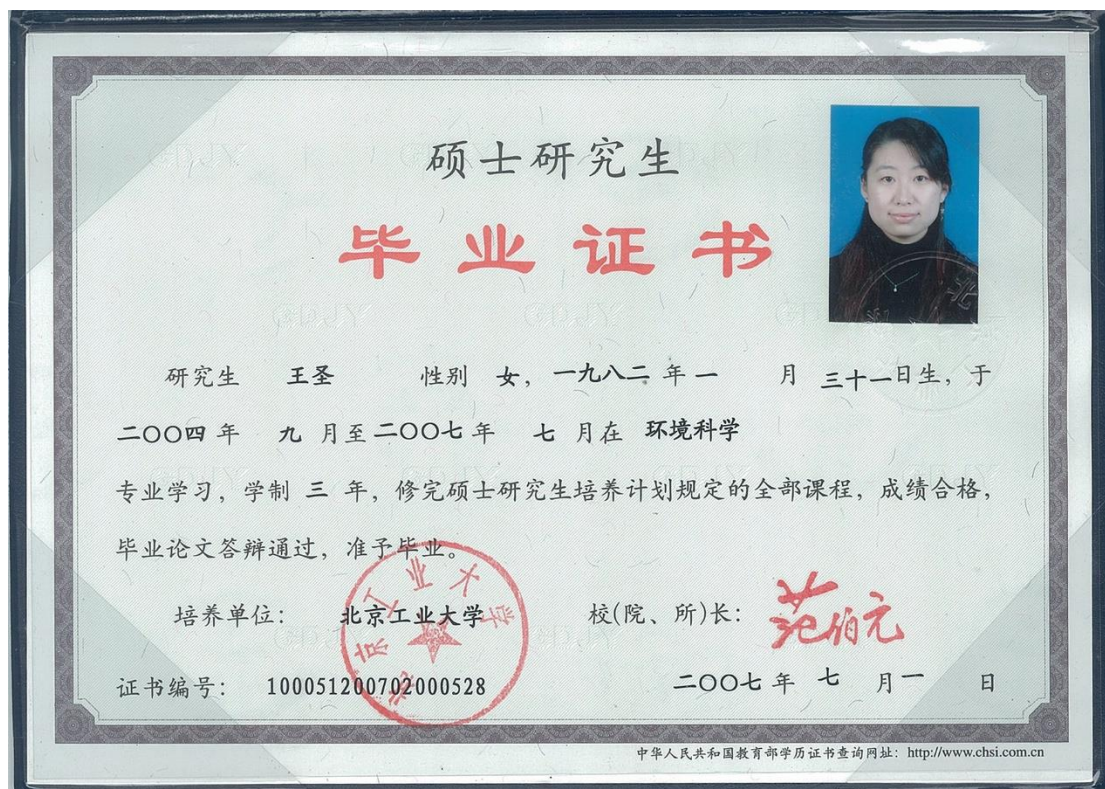 硕士研究生
毕业证书
研究生 王圣 性别 女，一九八二 年 一 月 三十一日生，于
二〇〇四 年 九 月至 二〇〇七 年 七 月在 环境科学
专业学习，学制 三 年，修完硕士研究生培养计划规定的全部课程，成绩合格，
毕业论文答辩通过，准予毕业。
培养单位： 北京工业大学 校(院、所)长： 范伯元
北京工业大学
证书编号： 100051200702000528 二〇〇七 年 七 月 一 日
中华人民共和国教育部学历证书查询网址：http://www.chsi.com.cn